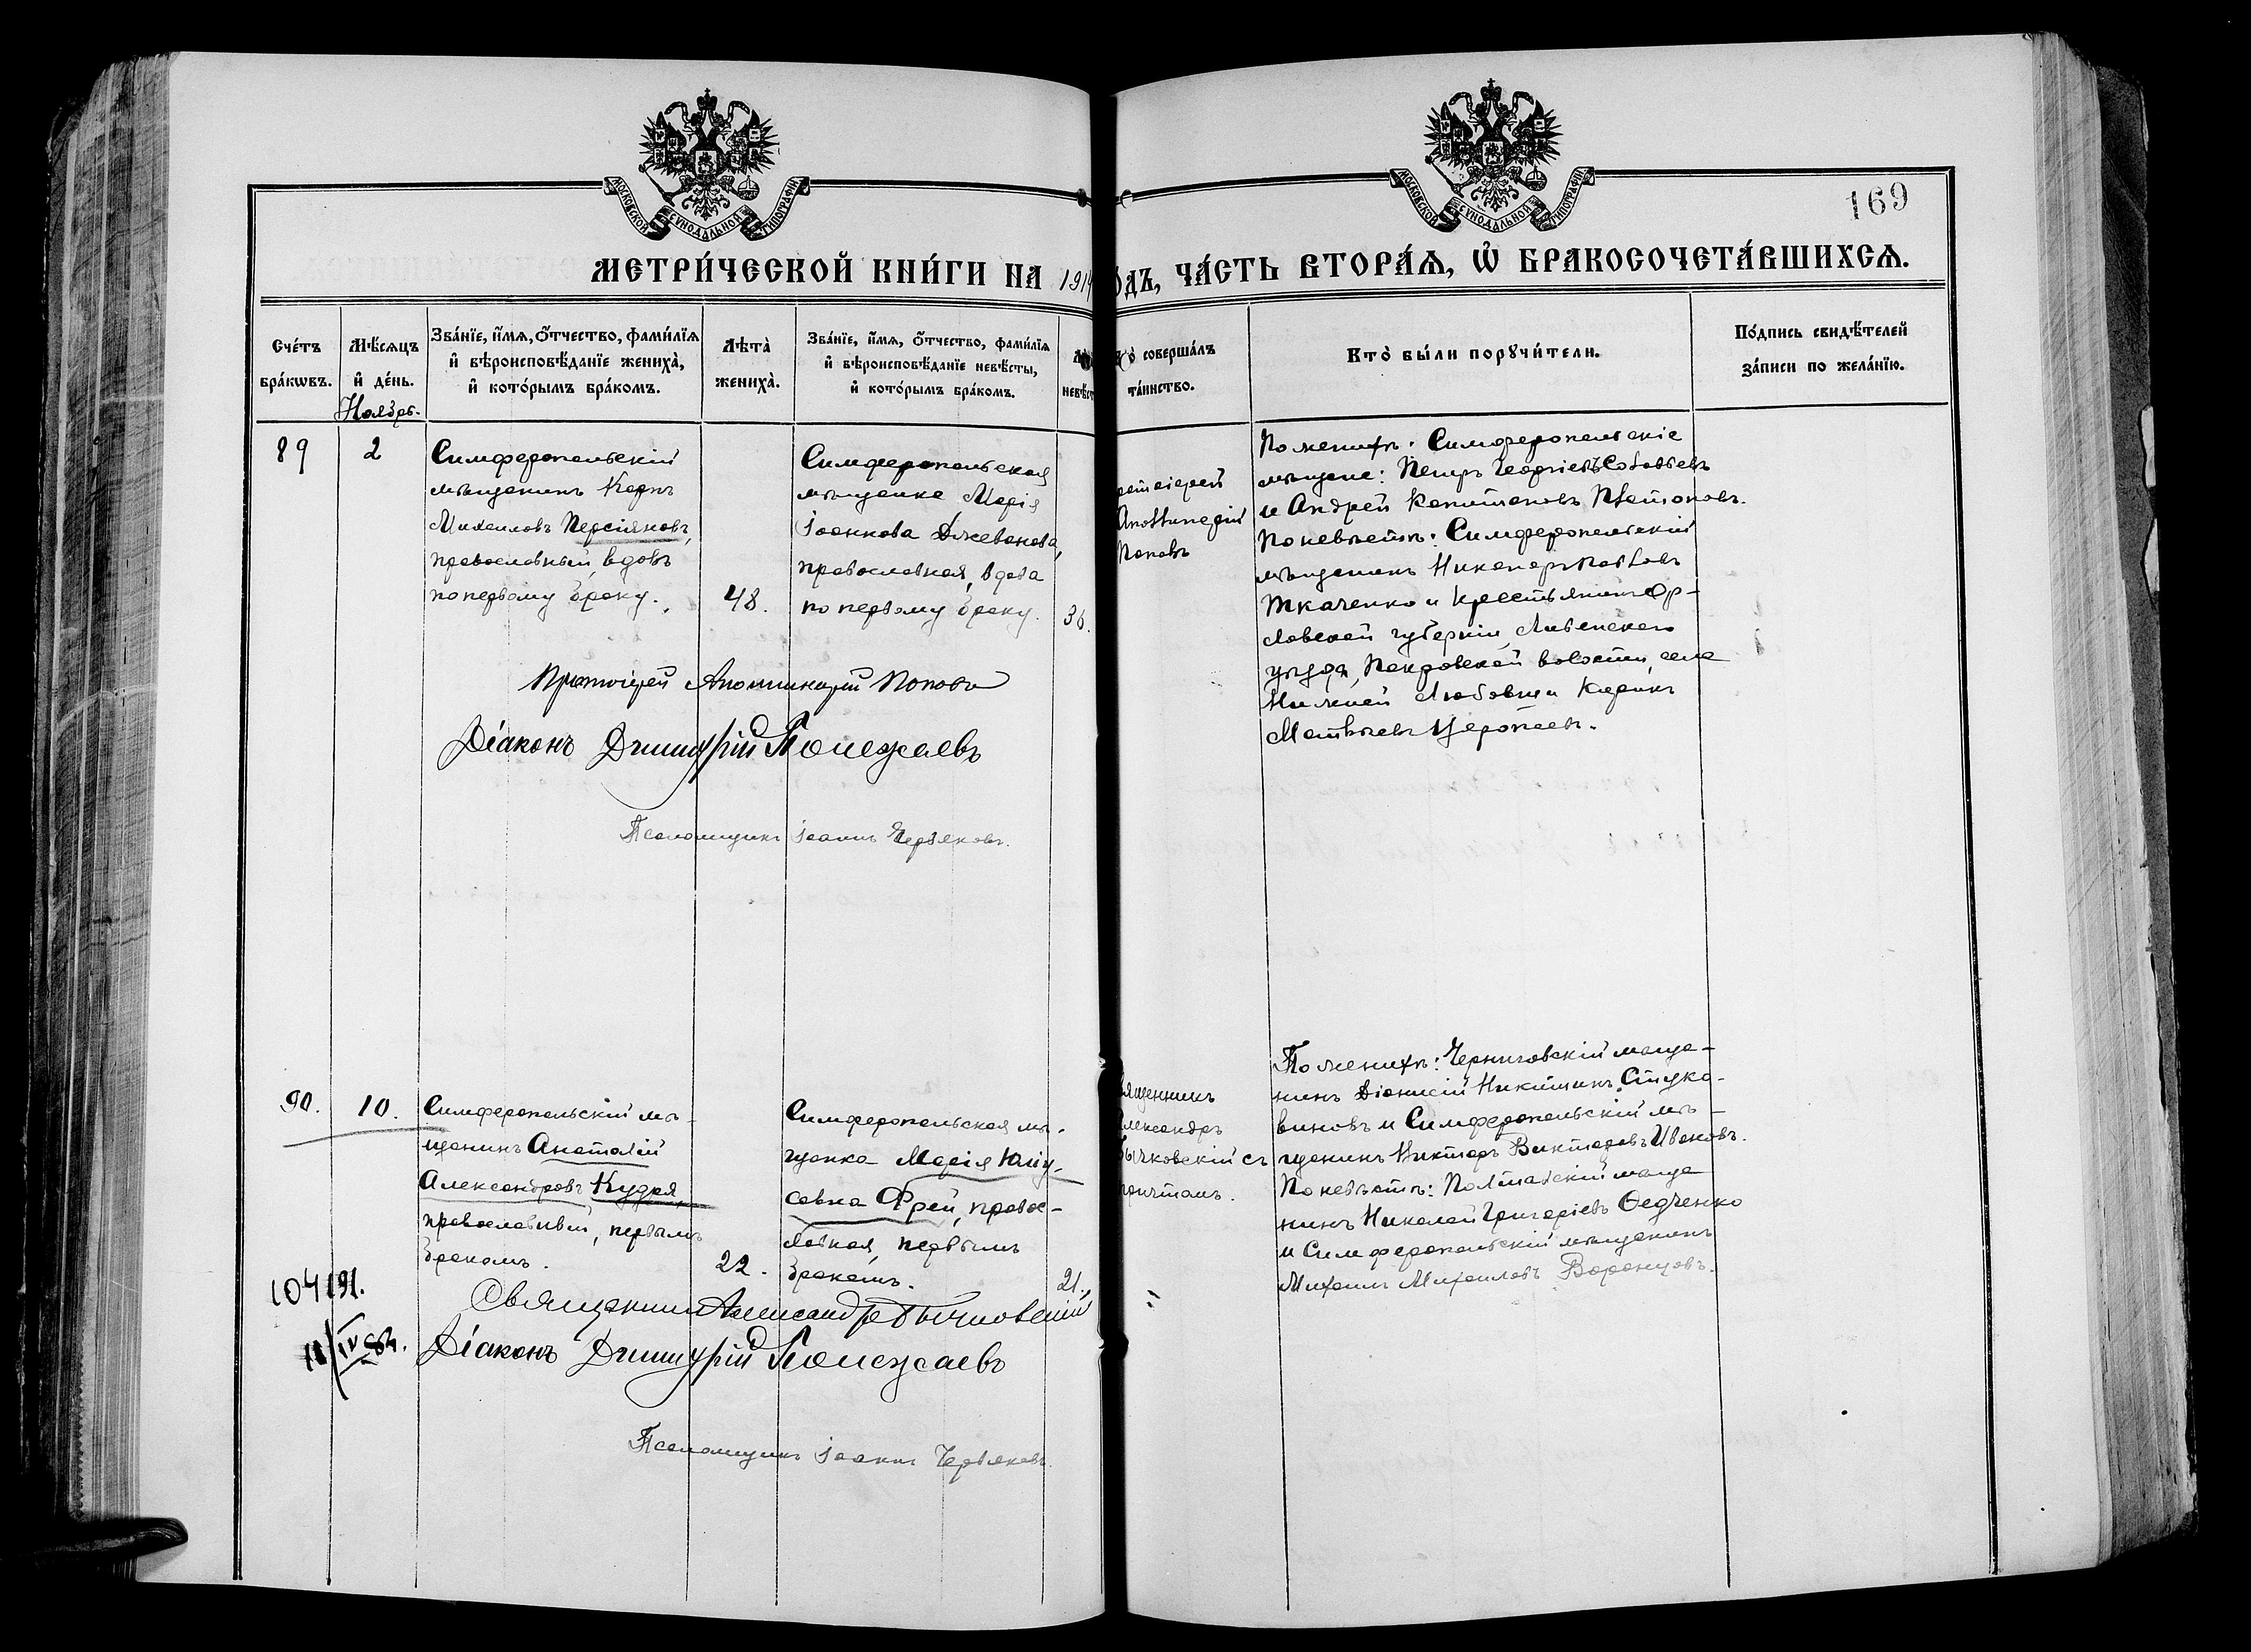 МОСКОВСКОЙ СѴНОДАЛЬНОЙ ТИПОГРАФІИ
МОСКОВСКОЙ СѴНОДАЛЬНОЙ ТИПОГРАФІИ
169
МЕТРИ́ЧЕСКОЙ КНИ́ГИ НА 1914
ОДЪ, ЧА́СТЬ ВТОРА́Ѧ, Ѽ БРАКОСОЧЕТА́ВШИХСѦ.
Сче́тъ бра́кѡвъ.
Мѣ́сяцъ и҆ де́нь.
Ноябрь.
Зва́нїе, и҆́мѧ, ѻ҆́тчество, фами́лїѧ
и҆ вѣроисповѣ́данїе жениха̀,
и҆ кото́рымъ бра́комъ.
Лѣта̀ жениха̀.
Зва́нїе, и҆́мѧ, ѻ҆́тчество, фами́лїѧ
и҆ вѣроисповѣ́данїе невѣ́сты,
и҆ кото́рымъ бра́комъ.
невѣст
о̀ соверша́лъ
та́инство.
Кто̀ бы́ли порꙋчи́тели.
По́дпись свидѣ́телей
за́писи по жела́нїю.
89
2
Симферопольскій
мѣщанинъ Карпъ
Михаиловъ Персіяновъ,
православный, вдовъ
по первому браку.
48.
Симферопольская
мѣщанка Марія
Іоаннова Джеванова,
православная, вдова
по первому браку.
36.
ротоіерей
Аполлинарій
Поповъ
По женихѣ: Симферопольскіе
мѣщане: Петръ Георгіевъ Соловьевъ
и Андрей Капитановъ Платоновъ.
По невѣстѣ: Симферопольскій
мѣщанинъ Никаноръ Павловъ
Ткаченко и крестьянинъ Ор-
ловской губерніи, Ливенскаго
уѣзда, Покровской волости, села
Нижней Любовши
Матвѣевъ
Протоіерей Аполлинарій Поповъ
Діаконъ Димитрій Полежаевъ
Псаломщикъ Іоаннъ Червяковъ.
90.
10.
Симферопольскій мѣ-
щанинъ Анатолій
Александровъ Кудря,
православный, первымъ
бракомъ.
22.
Симферопольская мѣ-
щанка Марія Юліу-
совна Фрей, правос-
лавная, первымъ
бракомъ.
21.
вященникъ
лександръ
Бычковскій съ
причтомъ.
По женихѣ: Черниговскій мѣща-
нинъ Діонисій Никитинъ Стука-
виновъ и Симферопольскій мѣ-
щанинъ Викторъ Викторовъ Ивановъ.
По невѣстѣ: Полтавскій мѣща
нинъ Николай Григоріевъ Ѳедченко
и Симферопольскій мѣщанинъ
Михаилъ Михаиловъ Воронцовъ.
104191.
Священникъ Александръ Бычковскій
Діаконъ Димитрій Полежаевъ
Псаломщикъ Іоаннъ Червяковъ.